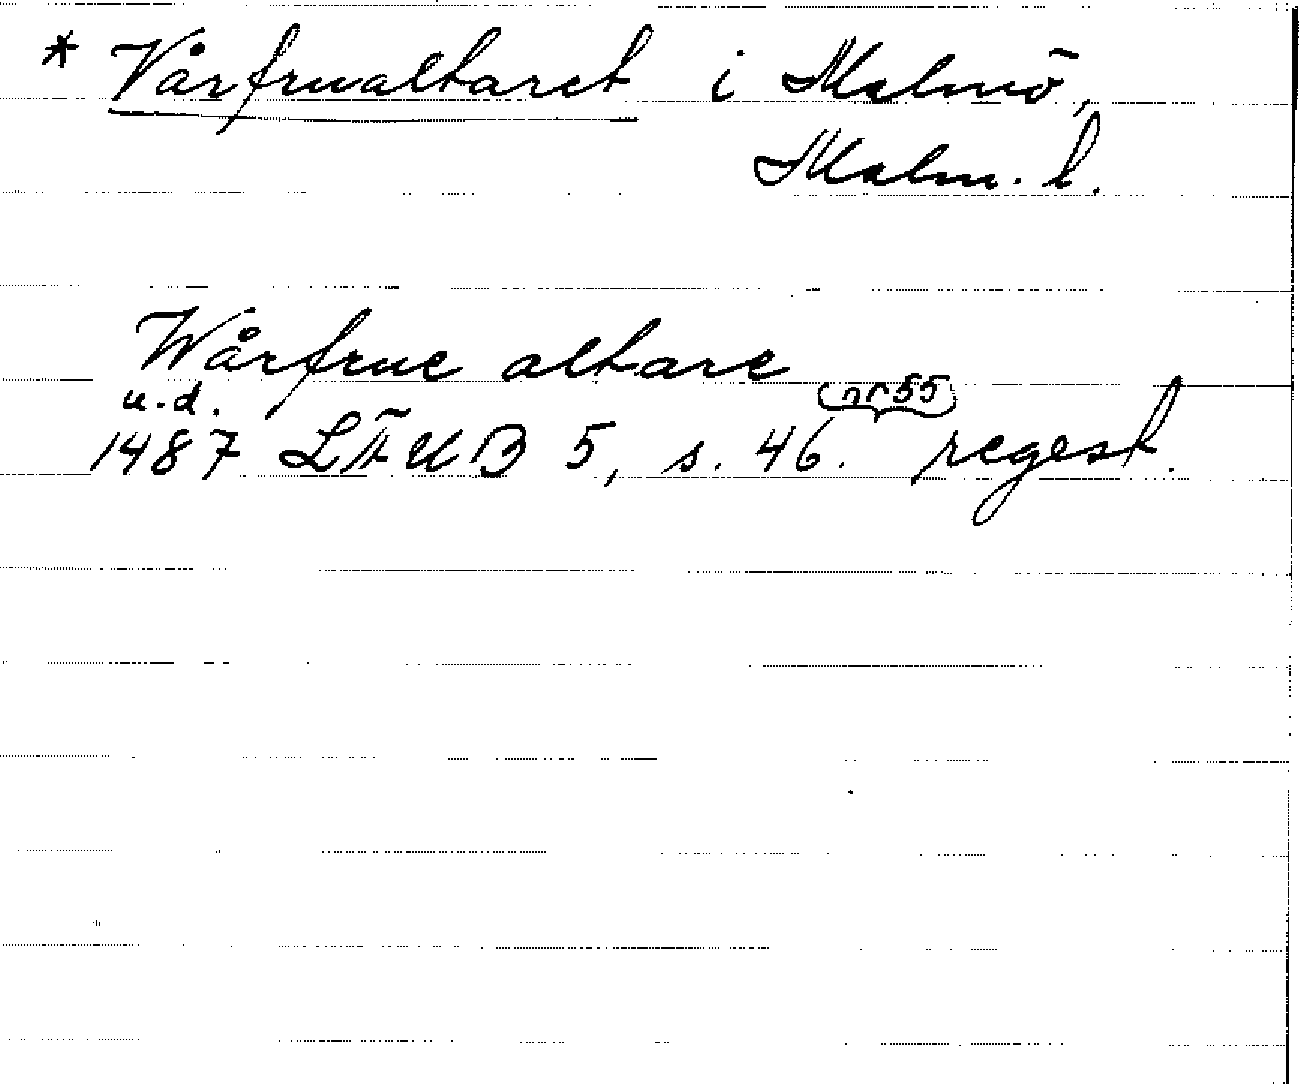 * Vårfrualtaret i Malmö,
Malm. h.
Wårfrue altare
u.d.
1487 LÄUB 5, s. 46. (nr 55) regest.